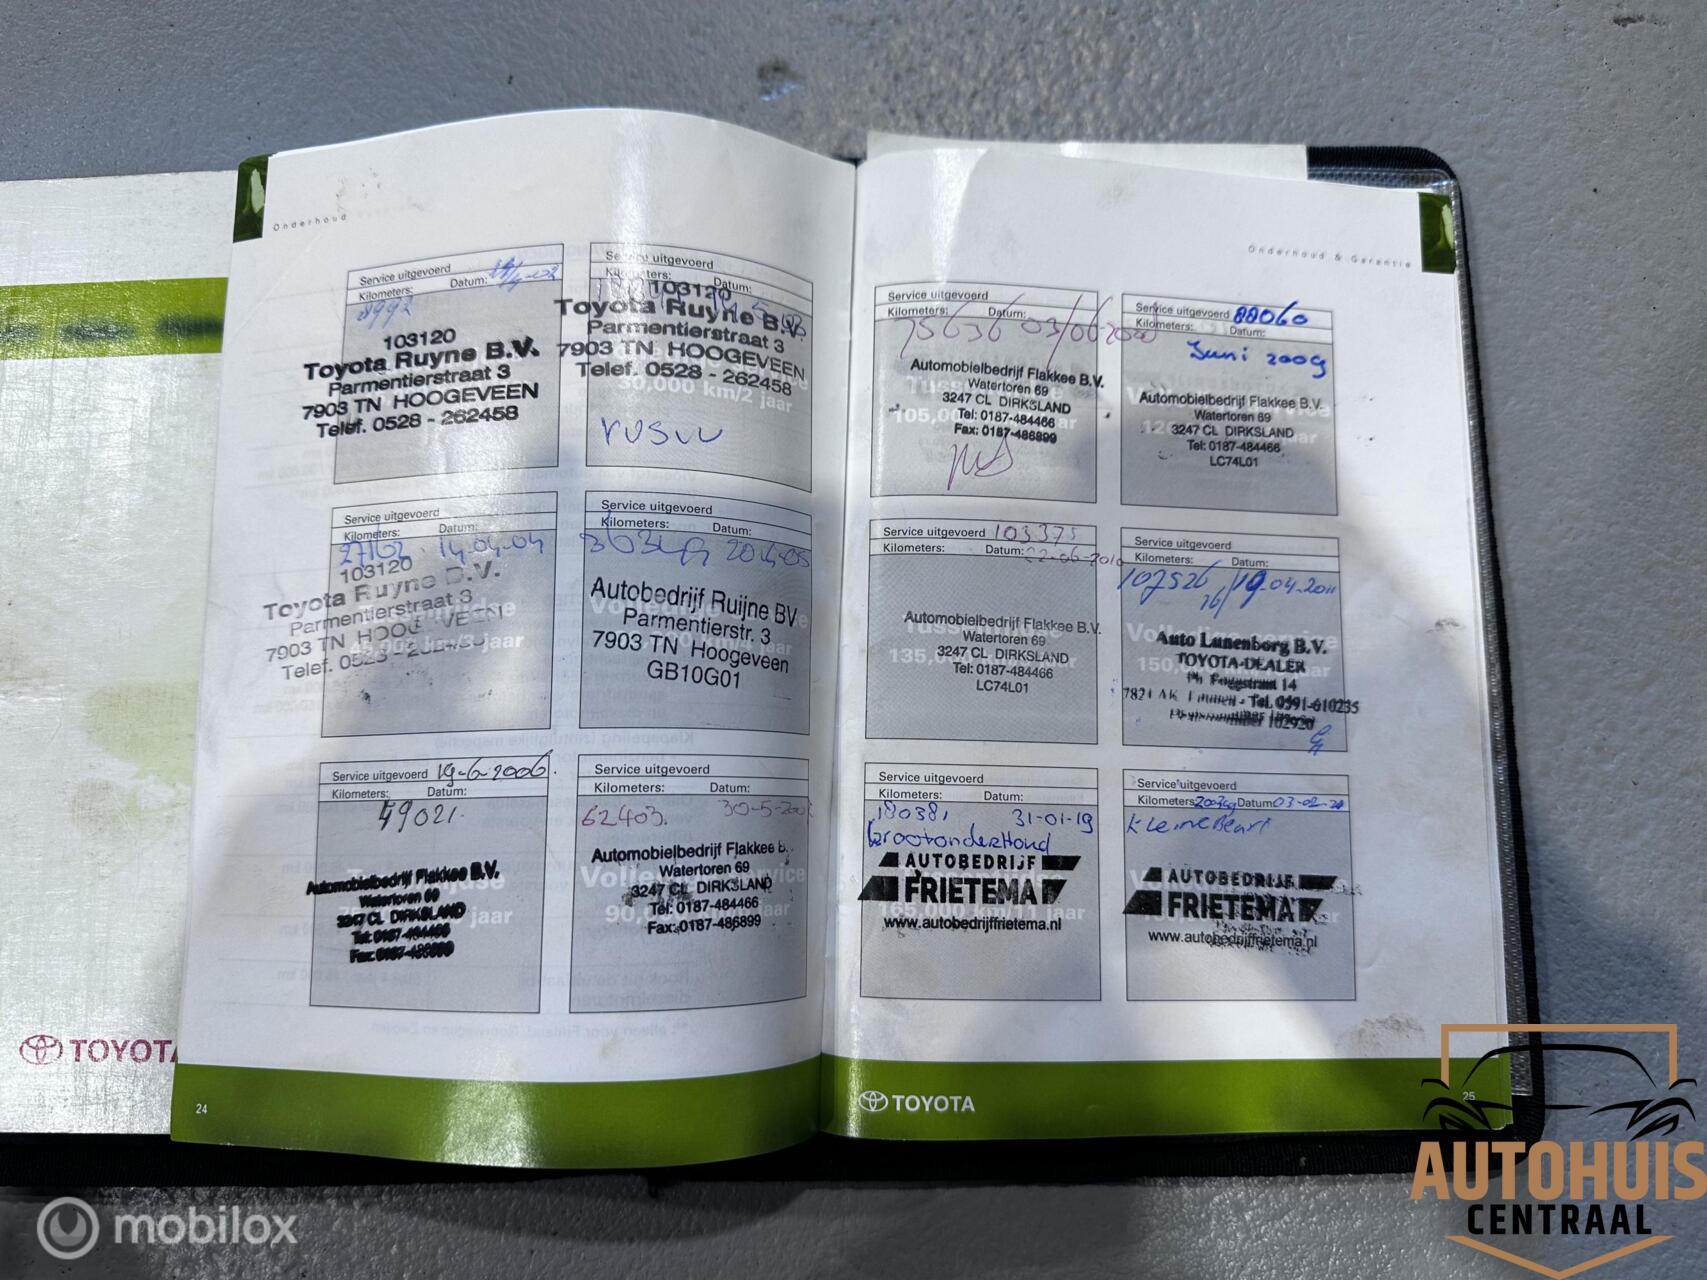 Onderhoud
Service uitgevoerd
Kilometers: Datum:
8992
103120
Toyota Ruyne B.V.
Parmentierstraat 3
7903 TN HOOGEVEEN
Telef. 0528 - 262458
Service uitgevoerd
Kilometers: Datum:
103120
Toyota Ruyne B.V.
Parmentierstraat 3
7903 TN HOOGEVEEN
Telef. 0528 - 262458
30,000 km/2 jaar
Service uitgevoerd
Kilometers: Datum:
27162 14-04-04
103120
Toyota Ruyne B.V.
Parmentierstraat 3
7903 TN HOOGEVEEN
Telef.
45,000 km/3 jaar
Service uitgevoerd
Kilometers: Datum:
Autobedrijf Ruijne BV
Parmentierstr. 3
7903 TN Hoogeveen
GB10G01
Service uitgevoerd 19-6-2006.
Kilometers: Datum:
49021.
Automobielbedrijf Flakkee B.V.
Watertoren 69
3247 CL DIRKSLAND
Tel: 0187-484466
Fax: 0187-486899
jaar
Service uitgevoerd
Kilometers: Datum:
62403.
Automobielbedrijf Flakkee B.V.
Watertoren 69
3247 CL DIRKSLAND
Tel: 0187-484466
Fax: 0187-486899
24
TOYOTA
Onderhoud & Garantie
Service uitgevoerd
Kilometers: Datum:
75636
Automobielbedrijf Flakkee B.V.
Watertoren 69
3247 CL DIRKSLAND
Tel: 0187-484466
Fax: 0187-486899
Service uitgevoerd 88060
Kilometers: Datum:
Juni 2009
Automobielbedrijf Flakkee B.V.
Watertoren 69
3247 CL DIRKSLAND
Tel: 0187-484466
LC74L01
Service uitgevoerd 103375
Kilometers: Datum: 22-06-2010
Automobielbedrijf Flakkee B.V.
Watertoren 69
3247 CL DIRKSLAND
Tel: 0187-484466
LC74L01
Service uitgevoerd
Kilometers: Datum:
107526 19-04-2011
Auto Lunenborg B.V.
TOYOTA-DEALER
Tel. 0591-610235
Service uitgevoerd
Kilometers: Datum:
180381 31-01-19
Grootonderhoud
AUTOBEDRIJF
FRIETEMA
www.autobedrijffrietema.nl
165,000 km/11 jaar
Service uitgevoerd
Kilometers: Datum:
Kleine Beurt
AUTOBEDRIJF
FRIETEMA
www.autobedrijffrietema.nl
TOYOTA
25
mobilox
AUTOHUIS
CENTRAAL